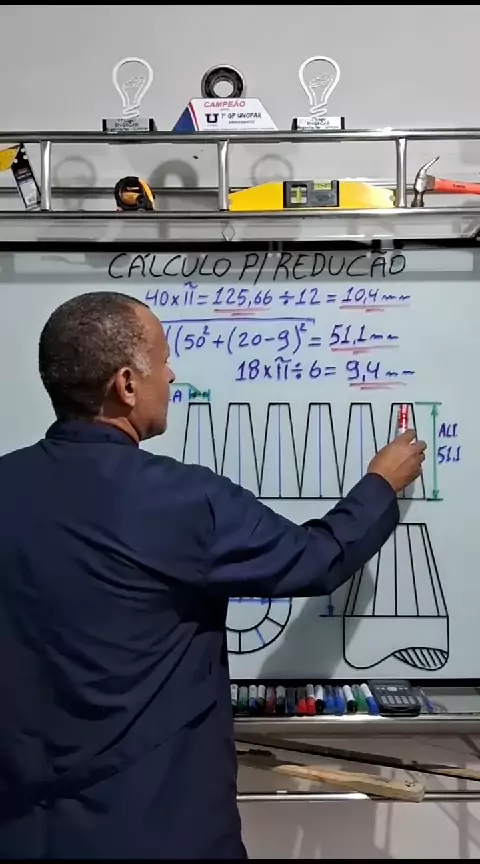 CAMPEÃO
U 1º GP UNOPAR
CÁLCULO P/ REDUCÃO
40 x π = 125,66 ÷ 12 = 10,4 mm
(50² + (20 - 9)² = 51,1 mm
18 x π ÷ 6 = 9,4 mm
A
ALT
51.1